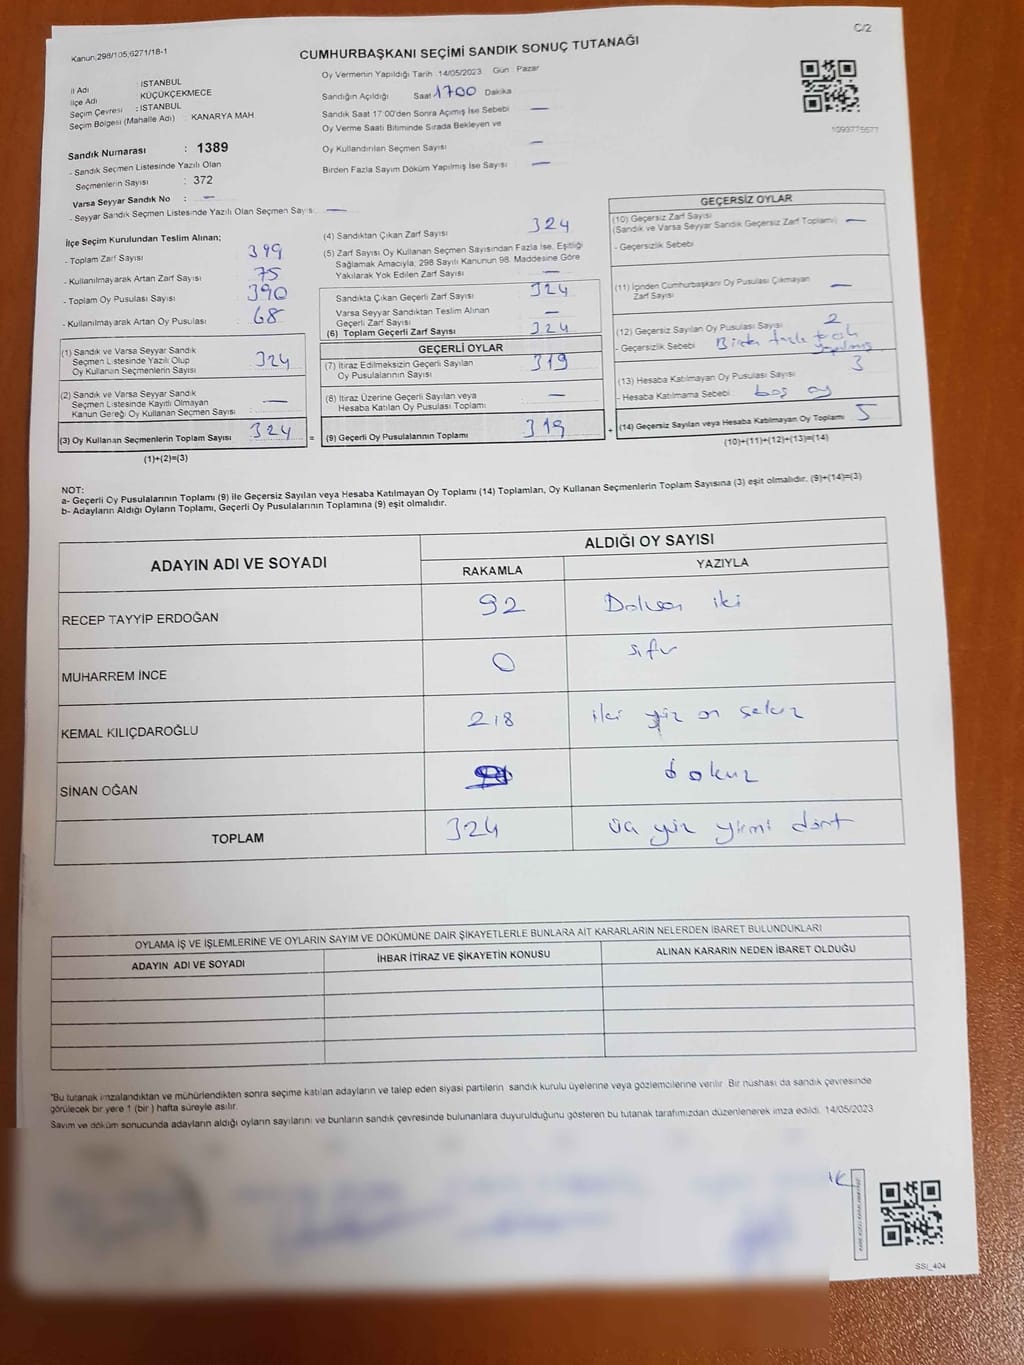 C/2
Kanun:298/105;6271/18-1
CUMHURBAŞKANI SEÇİMİ SANDIK SONUÇ TUTANAĞI
İl Adı : İSTANBUL
İlçe Adı KÜÇÜKÇEKMECE
Seçim Çevresi : İSTANBUL
Seçim Bölgesi (Mahalle Adı) : KANARYA MAH
Sandık Numarası : 1389
- Sandık Seçmen Listesinde Yazılı Olan
Seçmenlerin Sayısı : 372
Varsa Seyyar Sandık No : —
- Seyyar Sandık Seçmen Listesinde Yazılı Olan Seçmen Sayısı: —
Oy Vermenin Yapıldığı Tarih :14/05/2023 Gün : Pazar
Sandığın Açıldığı Saat 1700 Dakika
Sandık Saat 17:00'den Sonra Açımış İse Sebebi —
Oy Verme Saati Bitiminde Sırada Bekleyen ve
Oy Kullandırılan Seçmen Sayısı —
Birden Fazla Sayım Döküm Yapılmış İse Sayısı —
1093775577
İlçe Seçim Kurulundan Teslim Alınan;
- Toplam Zarf Sayısı 399
- Kullanılmayarak Artan Zarf Sayısı 75
- Toplam Oy Pusulası Sayısı 390
- Kullanılmayarak Artan Oy Pusulası 68
(1) Sandık ve Varsa Seyyar Sandık
Seçmen Listesinde Yazılı Olup
Oy Kullanan Seçmenlerin Sayısı 324
(2) Sandık ve Varsa Seyyar Sandık
Seçmen Listesinde Kayıtlı Olmayan
Kanun Gereği Oy Kullanan Seçmen Sayısı —
(3) Oy Kullanan Seçmenlerin Toplam Sayısı 324 =
(1)+(2)=(3)
(4) Sandıktan Çıkan Zarf Sayısı 324
(5) Zarf Sayısı Oy Kullanan Seçmen Sayısından Fazla İse, Eşitliği
Sağlamak Amacıyla, 298 Sayılı Kanunun 98. Maddesine Göre
Yakılarak Yok Edilen Zarf Sayısı —
Sandıkta Çıkan Geçerli Zarf Sayısı 324
Varsa Seyyar Sandıktan Teslim Alınan
Geçerli Zarf Sayısı —
(6) Toplam Geçerli Zarf Sayısı 324
GEÇERLİ OYLAR
(7) İtiraz Edilmeksizin Geçerli Sayılan
Oy Pusulalarının Sayısı 319
(8) İtiraz Üzerine Geçerli Sayılan veya
Hesaba Katılan Oy Pusulası Toplamı —
(9) Geçerli Oy Pusulalarının Toplamı 319 +
GEÇERSİZ OYLAR
(10) Geçersiz Zarf Sayısı
(Sandık ve Varsa Seyyar Sandık Geçersiz Zarf Toplamı) —
- Geçersizlik Sebebi
(11) İçinden Cumhurbaşkanı Oy Pusulası Çıkmayan
Zarf Sayısı —
(12) Geçersiz Sayılan Oy Pusulası Sayısı 2
- Geçersizlik Sebebi Birden fazla
(13) Hesaba Katılmayan Oy Pusulası Sayısı 3
- Hesaba Katılmama Sebebi boş oy
(14) Geçersiz Sayılan veya Hesaba Katılmayan Oy Toplamı 5
(10)+(11)+(12)+(13)=(14)
NOT:
a- Geçerli Oy Pusulalarının Toplamı (9) ile Geçersiz Sayılan veya Hesaba Katılmayan Oy Toplamı (14) Toplamları, Oy Kullanan Seçmenlerin Toplam Sayısına (3) eşit olmalıdır. (9)+(14)=(3)
b- Adayların Aldığı Oyların Toplamı, Geçerli Oy Pusulalarının Toplamına (9) eşit olmalıdır.
ADAYIN ADI VE SOYADI ALDIĞI OY SAYISI
RAKAMLA YAZIYLA
RECEP TAYYİP ERDOĞAN 92 Doksan iki
MUHARREM İNCE 0 sıfır
KEMAL KILIÇDAROĞLU 218 iki yüz on sekiz
SİNAN OĞAN dokuz
TOPLAM 324 üç yüz yirmi dört
OYLAMA İŞ VE İŞLEMLERİNE VE OYLARIN SAYIM VE DÖKÜMÜNE DAİR ŞİKAYETLERLE BUNLARA AİT KARARLARIN NELERDEN İBARET BULUNDUKLARI
ADAYIN ADI VE SOYADI İHBAR İTİRAZ VE ŞİKAYETİN KONUSU ALINAN KARARIN NEDEN İBARET OLDUĞU
*Bu tutanak imzalandıktan ve mühürlendikten sonra seçime katılan adayların ve talep eden siyasi partilerin sandık kurulu üyelerine veya gözlemcilerine verilir. Bir nüshası da sandık çevresinde
görülecek bir yere 1 (bir) hafta süreyle asılır.
Sayım ve döküm sonucunda adayların aldığı oyların sayılarını ve bunların sandık çevresinde bulunanlara duyurulduğunu gösteren bu tutanak tarafımızdan düzenlenerek imza edildi. 14/05/2023
SSI_404